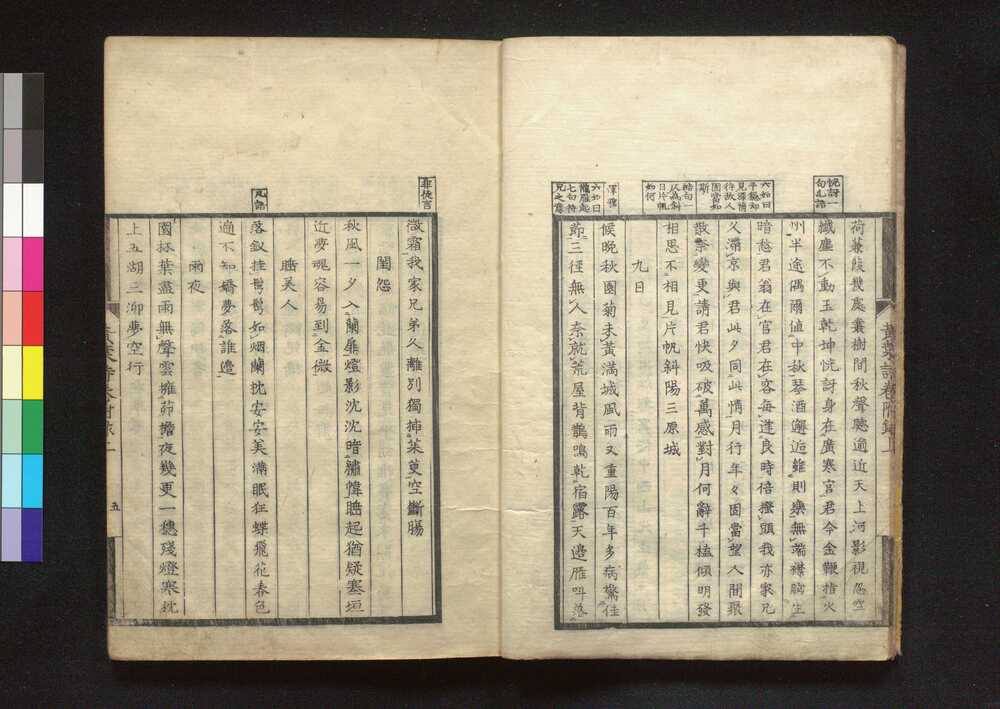 恍訝一
句九語
荷蕩陂幾處叢樹間秋聲聽過近天上河影視忽空
纖塵不動玉乾坤恍訝身在廣寒宮君今金鞭指火
州半途偶爾値中秋琴酒邂逅雖則樂無端襟胸生
暗愁君翁在官君在客每逢良時倍搔頭我亦家兄
久滯京與君此夕同此情月行年々固當望人間聚
散奈變更請君快吸破萬感對月何辭千榼傾明發
相思不相見片帆斜陽三原城
九日
候晩秋園菊未黃滿城風雨又重陽百年多病驚佳
節三徑無人奈就荒屋背鵲鳴乾宿露天邊雁叫落
六如曰
渾雅
六如曰
如何
黃葉詩卷附錄上
微霜我家兄弟久離別獨揷茱萸空斷腸
閨怨
秋風一夕入蘭扉燈影沈沈暗繡幃睡起猶疑塞垣
近夢魂容易到金微
睡美人
落釵挂鬂鬂如烟蘭枕安安美滿眠狂蝶飛花春色
過不知嬌夢落誰邊
雨夜
園林葉盡雨無聲雲擁茆檐夜幾更一穗殘燈寒枕
上五湖三泖夢空行
五